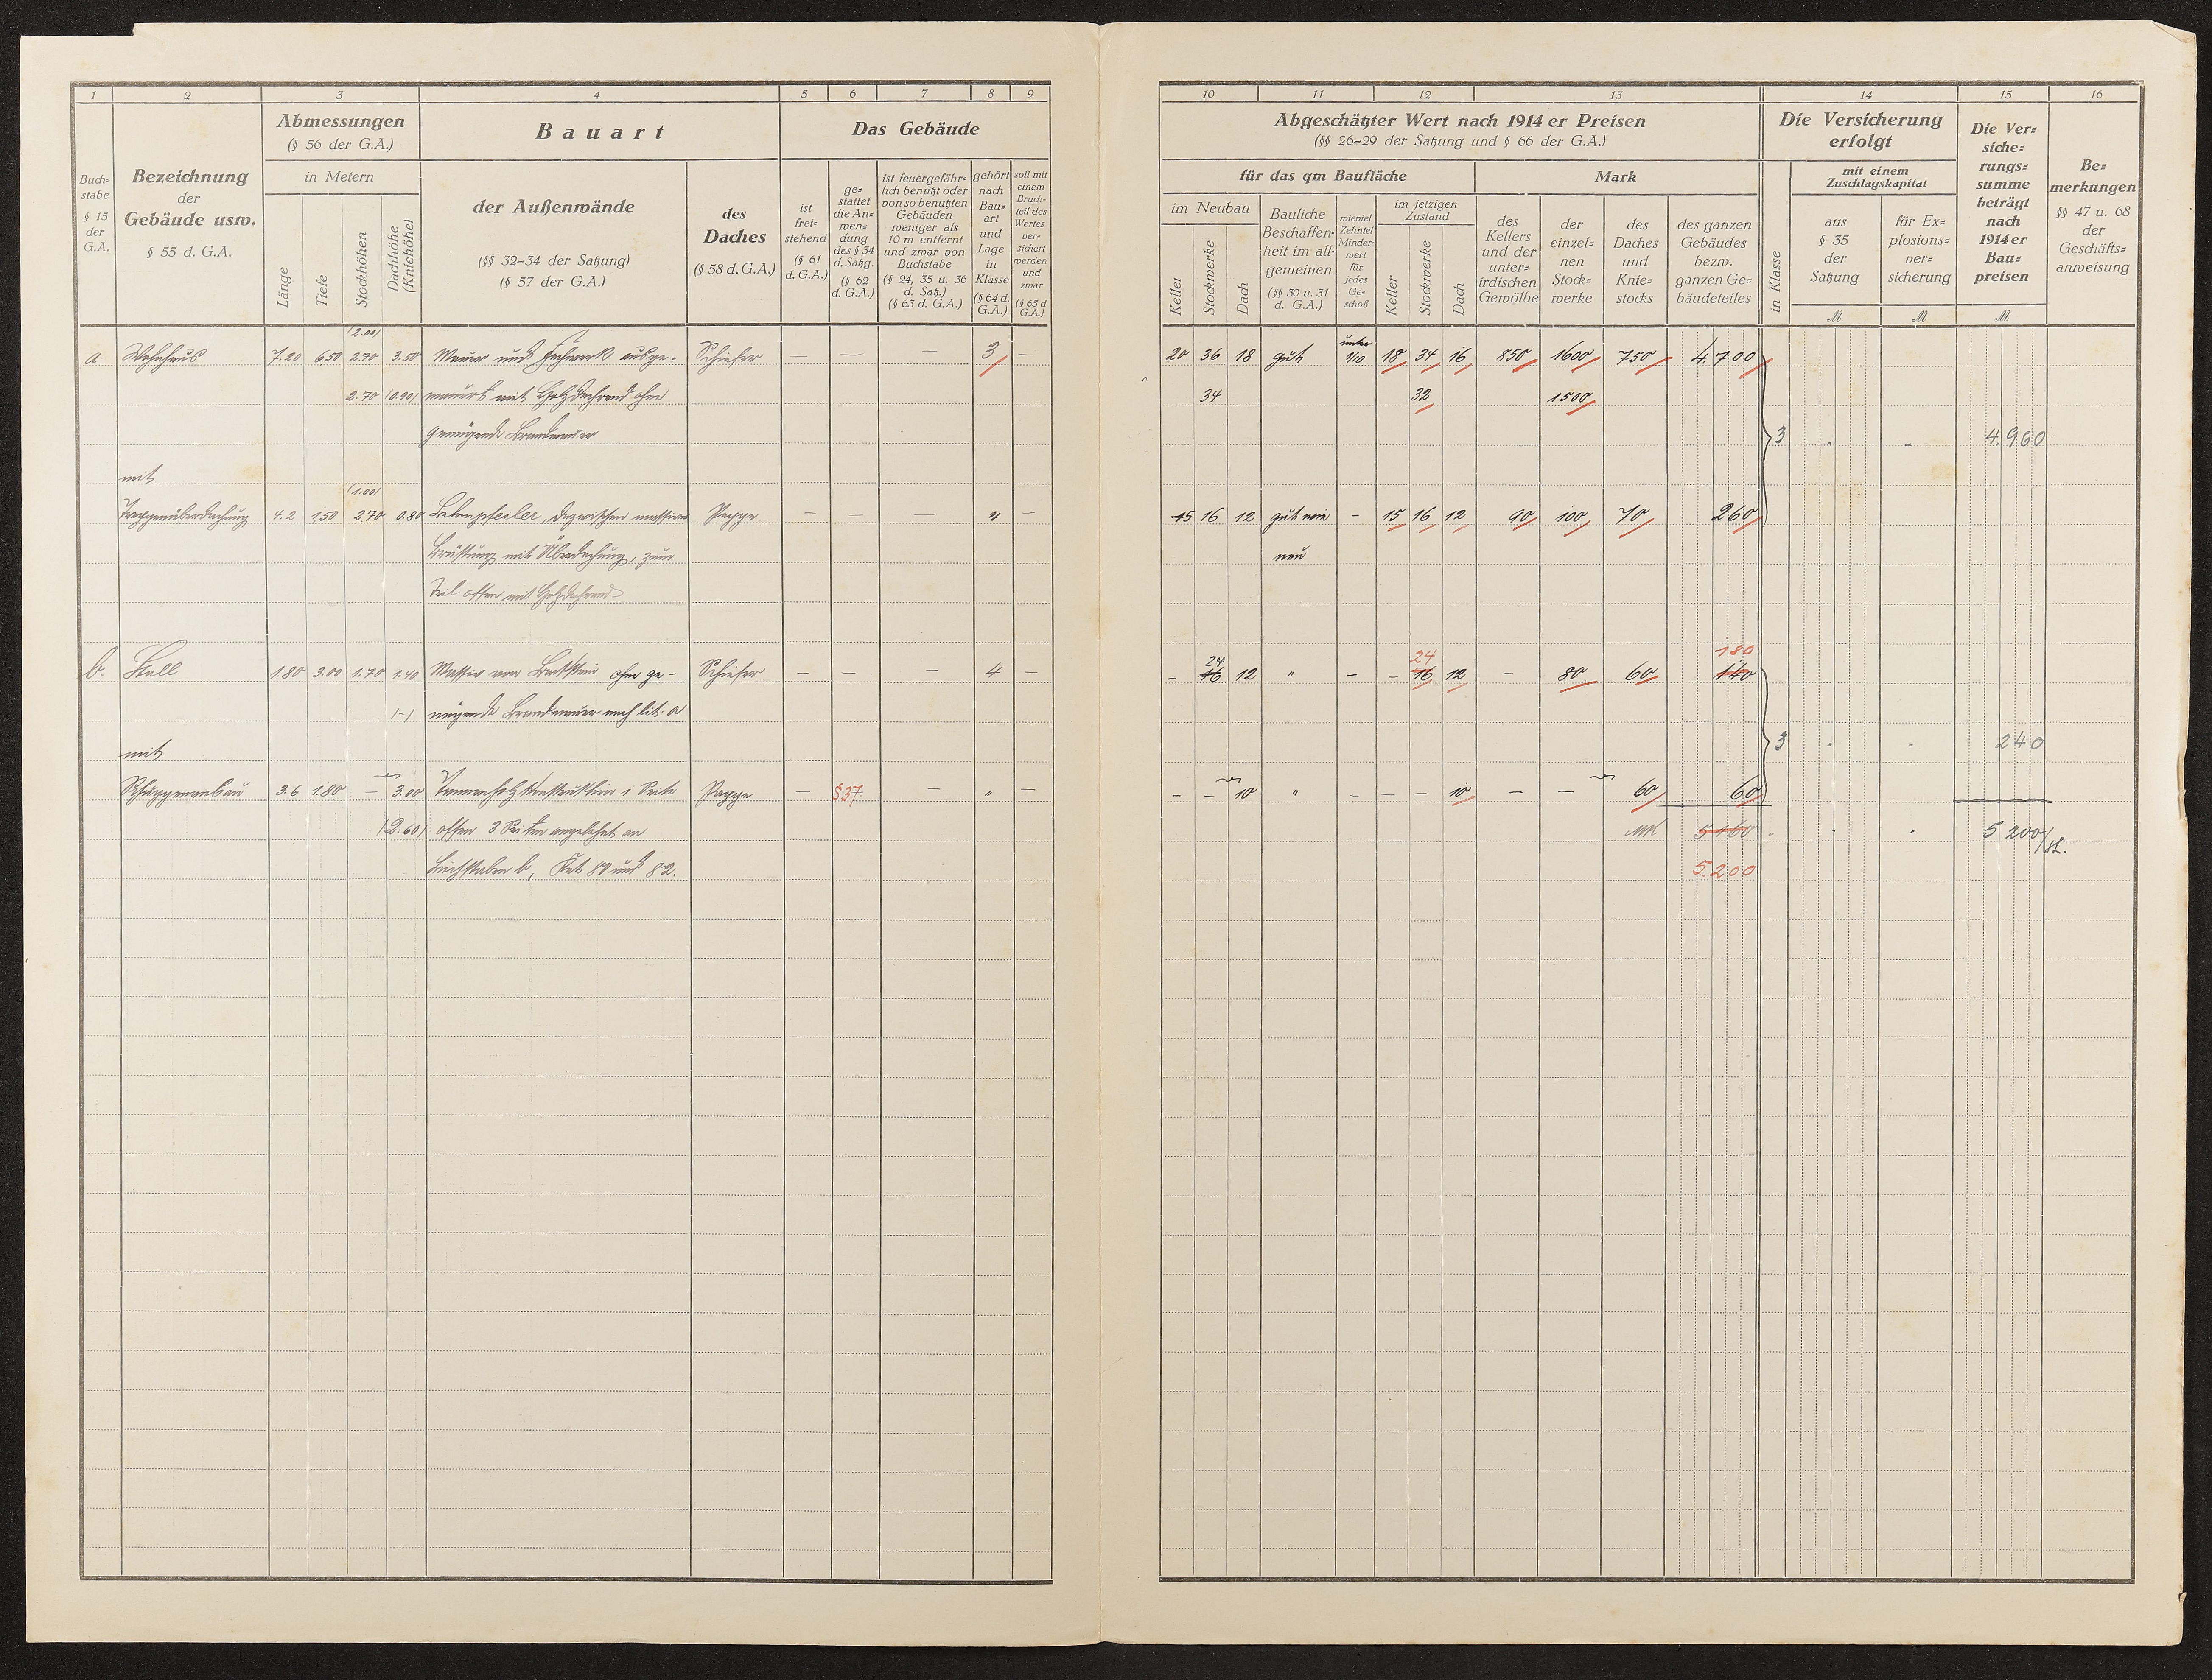 1 2 3 4 5 6 7 8 9
Abmessungen
(§ 56 der G.A.)
Bauart
Das Gebäude
Buch=
stabe
§ 15
der
G.A.
Bezeichnung
der
Gebäude usw.
§ 55 d. G.A.
in Metern
Länge
Tiefe
Stockhöhen
Dachhöhe
(Kniehöhe)
der Außenwände
(§§ 32-34 der Satzung)
(§ 57 der G.A.)
des
Daches
(§ 58 d. G.A.)
ist
frei=
stehend
(§ 61
d. G.A.)
ge=
stattet
die An=
wen=
dung
des § 34
d. Satzg.
(§ 62
d. G.A.)
ist feuergefähr=
lich benutzt oder
von so benutzten
Gebäuden
weniger als
10 m entfernt
und zwar von
Buchstabe
(§ 24, 35 u. 36
d. Satz.)
(§ 63 d. G.A.)
gehört
nach
Bau=
art
und
Lage
in
Klasse
(§ 64 d.
G.A.)
soll mit
einem
Bruch=
teil des
Wertes
ver=
sichert
werden
und
zwar
(§ 65 d
G.A.)
(2.00)
a Wohnhaus 7.20 6.50 2.70 3.50 Mauer und Fachwerk ausge- Schiefer — — — 3 —
2.70 (0.90) mauert mit Holzdachrand ohne
genügende Brandmauer
mit
(1.00)
Treppenüberdachung 4.2 1.50 2.70 0.80 Betonpfeiler, dazwischen massive Pappe — — — " —
Brüstung mit Überdachung, zum
Teil offen mit Holzdachrand
b. Stall 1.80 3.00 1.70 1.40 Massiv von Backstein ohne ge- Schiefer — — — 4 —
(-) nügende Brandmauer nach lit. a
mit
Schuppenanbau 3.6 1.80 — 3.00 Tannenholzkonstruktion 1 Seite Pappe — § 37. — " —
(2.60) offen 3 Seiten angelehnt an
Buchstaben b, Kat 80 und 82.
10 11 12 13 14 15 16
Abgeschätzter Wert nach 1914 er Preisen
(§§ 26-29 der Satzung und § 66 der G.A.)
Die Versicherung
erfolgt
Die Ver=
siche=
rungs=
summe
beträgt
nach
1914 er
Bau=
preisen
M
Be=
merkungen
§§ 47 u. 68
der
Geschäfts=
anweisung
für das qm Baufläche
Mark
in Klasse
mit einem
Zuschlagskapital
im Neubau
Keller
Stockwerke
Dach
Bauliche
Beschaffen=
heit im all=
gemeinen
(§§ 30 u. 31
d. G.A.)
wieviel
Zehntel
Minder=
wert
für
jedes
Ge=
schoß
im jetzigen
Zustand
Keller
Stockwerke
Dach
des
Kellers
und der
unter=
irdischen
Gewölbe
der
einzel=
nen
Stock=
werke
des
Daches
und
Knie=
stocks
des ganzen
Gebäudes
bezw.
ganzen Ge=
bäudeteiles
aus
§ 35
der
Satzung
M
für Ex=
plosions=
ver=
sicherung
M
unter
20 36 18 gut 1/10 18 34 16 850 1600 750 4.700
34 32 1500
3 - - 4.960
15 16 12 gut wie - 15 16 12 90 100 70 260
neu
24 24 180
- 16 12 " - - 16 12 - 80 60 140
3 - - 240
- - 10 " - - - 10 - - 60 60
5160 - - - 5 200
5.200